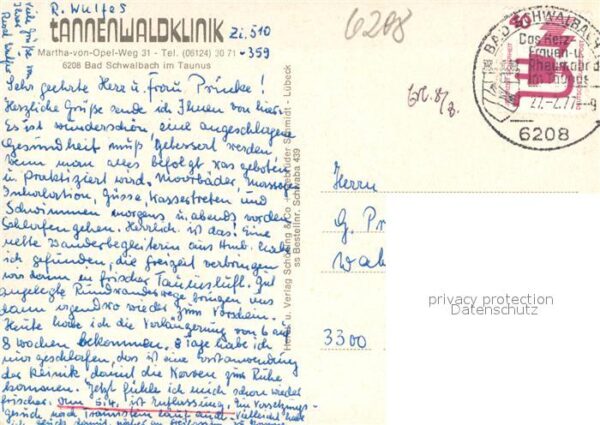 R. Wulfes
TANNENWALDKLINIK Zi. 510
Martha-von-Opel-Weg 31 - Tel. (06124) 30 71 -359
6208 Bad Schwalbach im Taunus
Sehr geehrte Herr u. Frau
Herzliche Grüße sende ich Ihnen von hier.
Es ist wunderschön, eine angeschlagene
Gesundheit muß gebessert werden
wenn man alles befolgt was geboten
u. praktiziert wird. Moorbäder, Massagen
Inhalation, Güsse, Wassertreten und
Schwimmen morgens u. abends vorden
Schlafen gehen. Herrlich ist das! Eine
nette Wanderbegleiterin aus Hmb. habe
ich gefunden, die freizeit verbringen
wir dann in frischer Taunusluft. Gut
angelegte Rundwanderwege bringen uns
dann irgendwo wieder zum Vorschein.
Heute habe ich die Verlängerung von 6 auf
8 wochen bekommen. 8 Tage habe ich
nur geschlafen, das ist eine
der Klinik damit die Nerven zur Ruhe
kommen. Jetzt fühle ich mich schon wieder
frischer. am 5.4. ist Entlassung. Ein Versetzungs-
gesuch nach läuft auch. Vielleicht
Viele Grüße von
Ihrer
Hofer. u. Verlag Schöning & Co + Gebrüder Schmidt - Lübeck
ss Bestellnr. Schwaba 439
6208
50
BAD SCHWALBACH
Das Herz-
Frauen-u.
Rheumabad
im Taunus
6208
Herrn
G. Pr
Wa
3300
privacy protection
Datenschutz